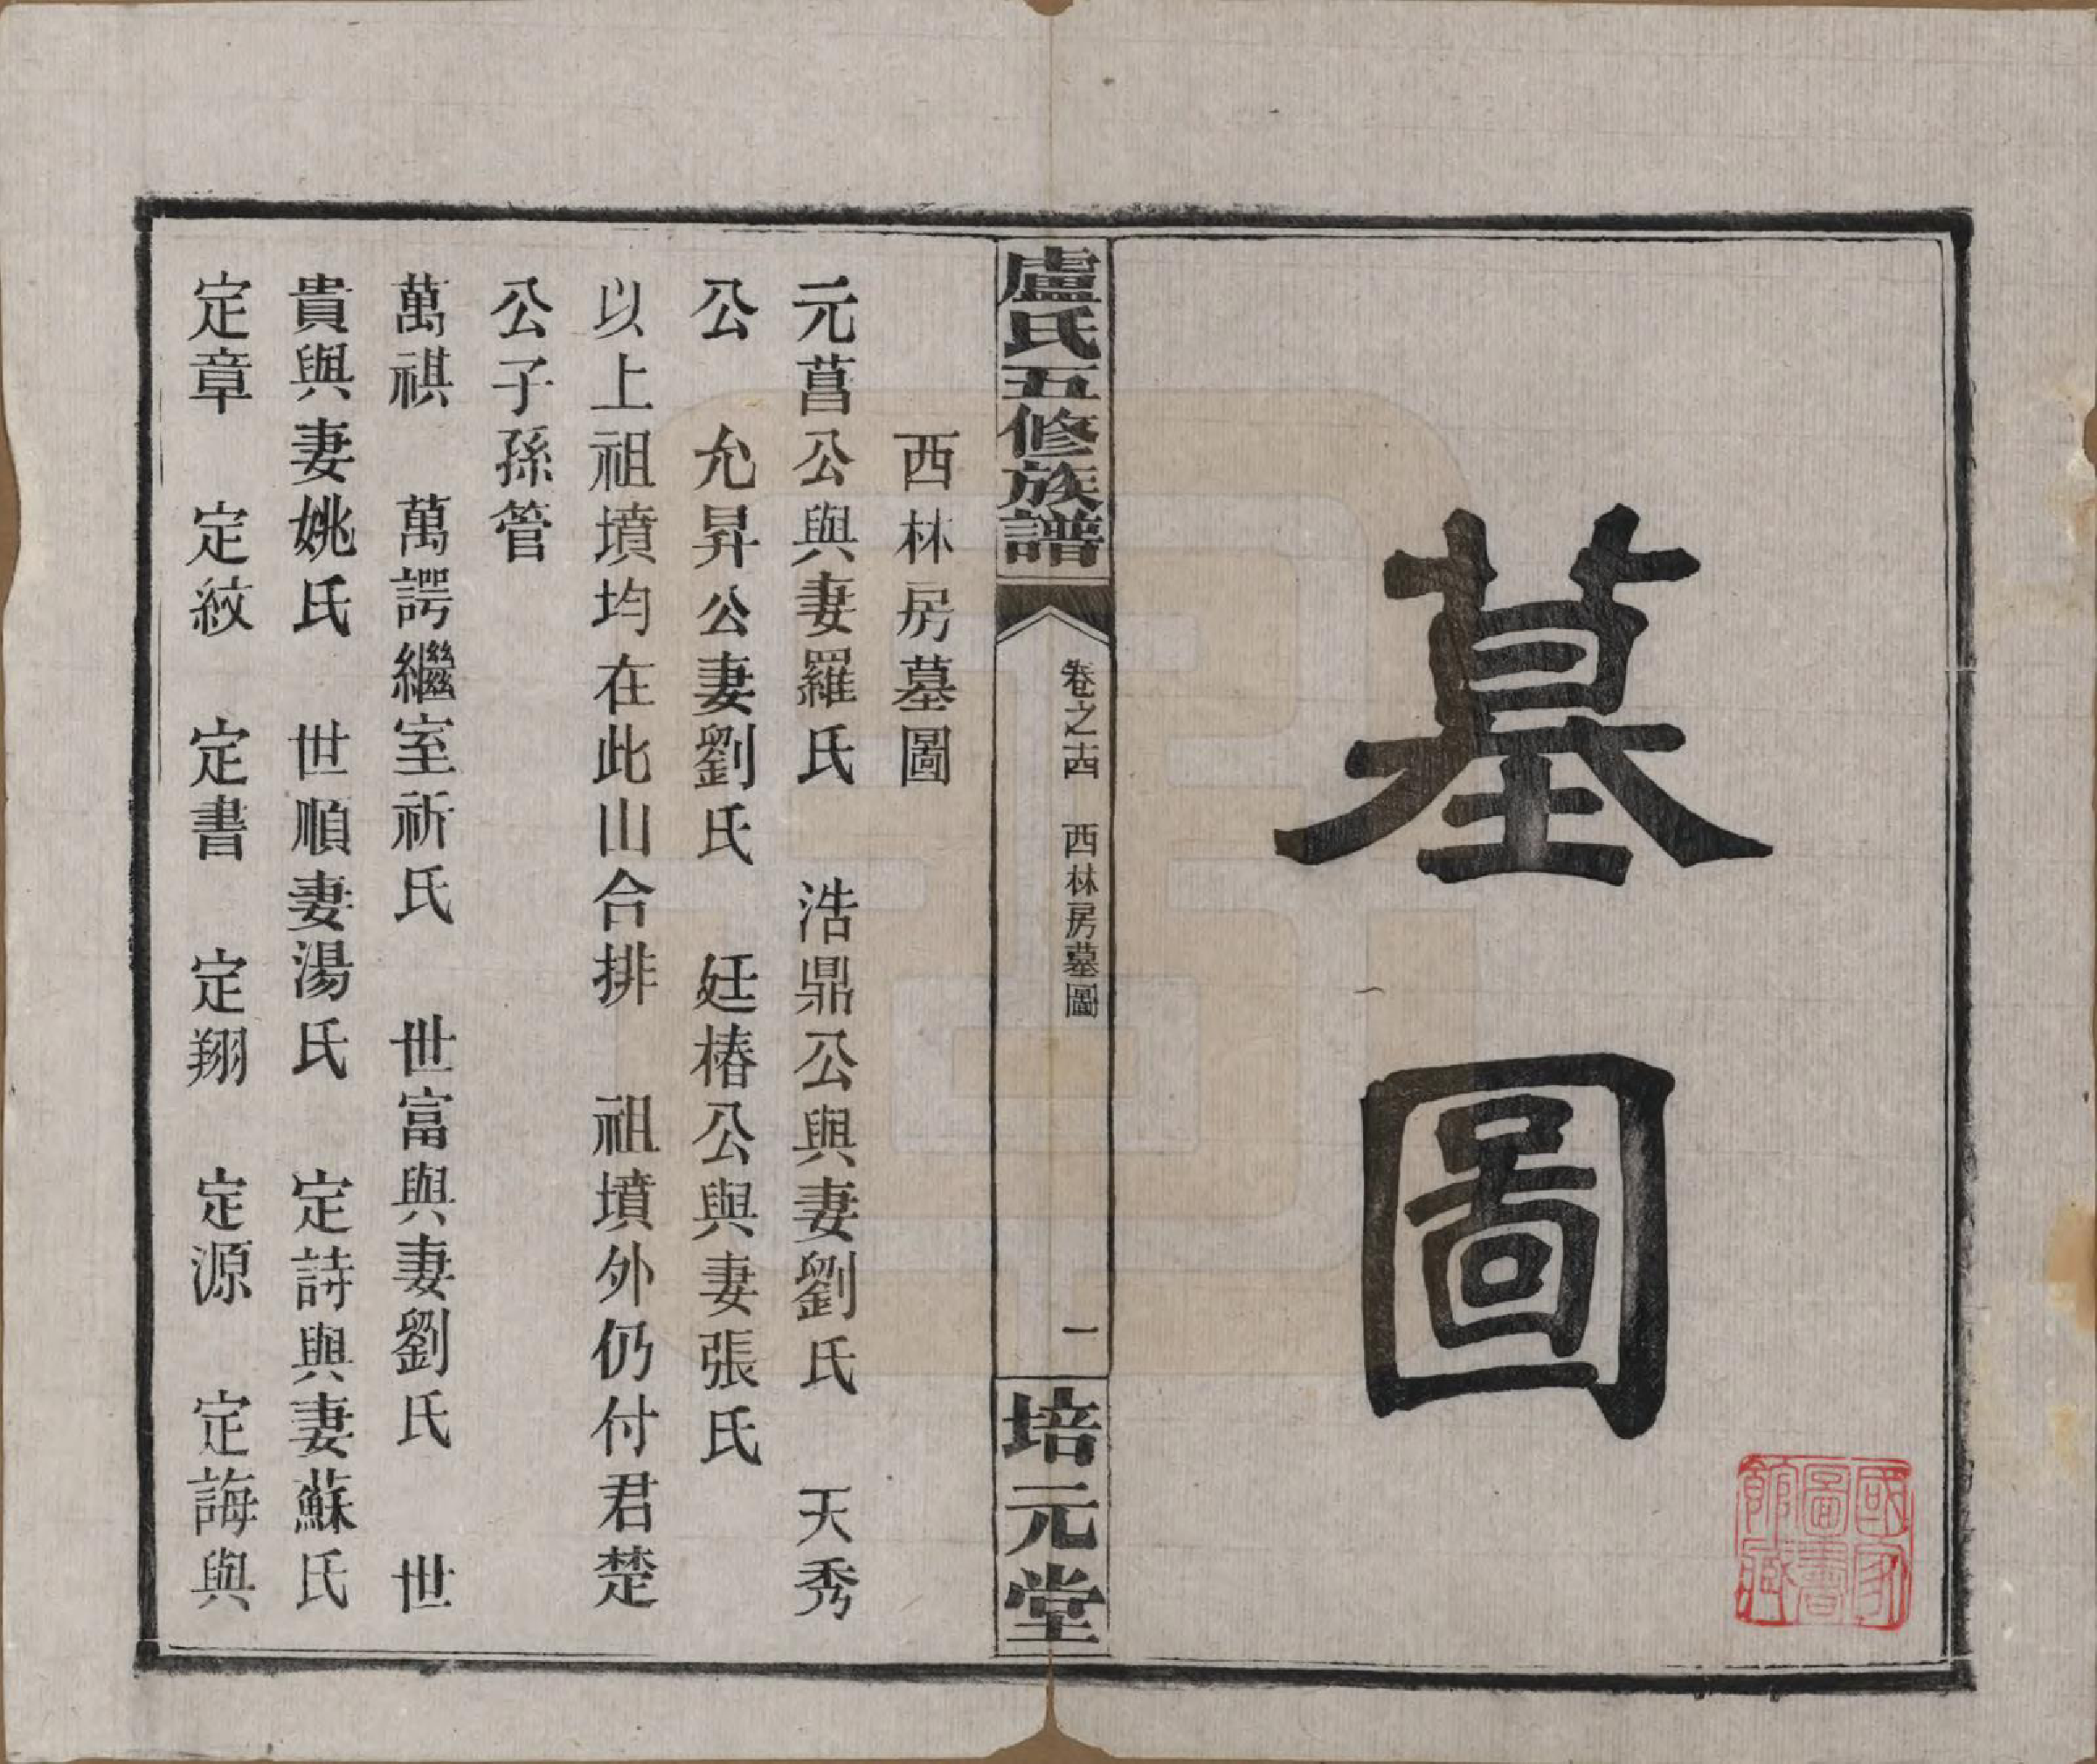 墓圖
國家圖書館藏
盧氏五修族譜
卷之十四　西林房墓圖
一
培元堂
西林房墓圖
元菖公與妻羅氏　浩鼎公與妻劉氏　天秀
公　允昇公妻劉氏　廷椿公與妻張氏
以上祖墳均在此山合排　祖墳外仍付君楚
公子孫管
萬祺　萬諤繼室祈氏　世富與妻劉氏　世
貴與妻姚氏　世順妻湯氏　定詩與妻蘇氏
定章　定紋　定書　定翔　定源　定誨與